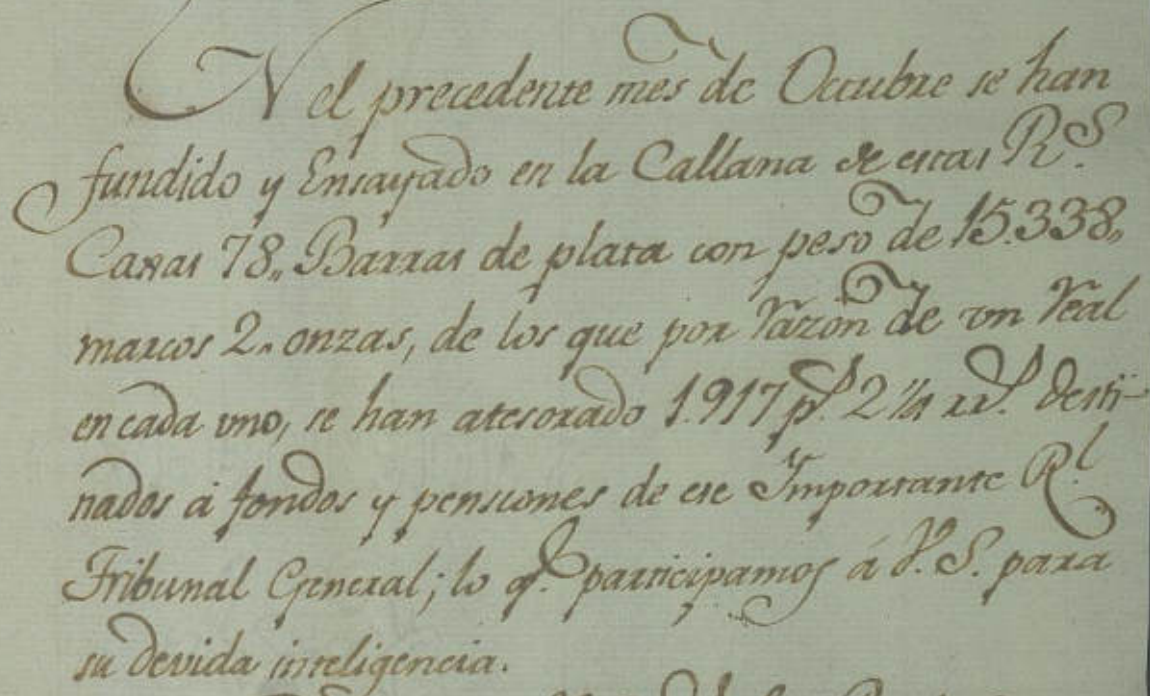 EN el precedente mes de Octubre se han
fundido y Ensayado en la Callana de estas R.s
Caxas 78,, Barras de plata con peso de 15.338,,
marcos 2,, onzas, de los que por razon de un real
en cada uno, se han atesorado 1.917 p.s 2 1/4 rr.s desti-
nados á fondos y pensiones de ese Importante R.l
Tribunal General; lo q.e participamos á V. S. para
su devida inteligencia.